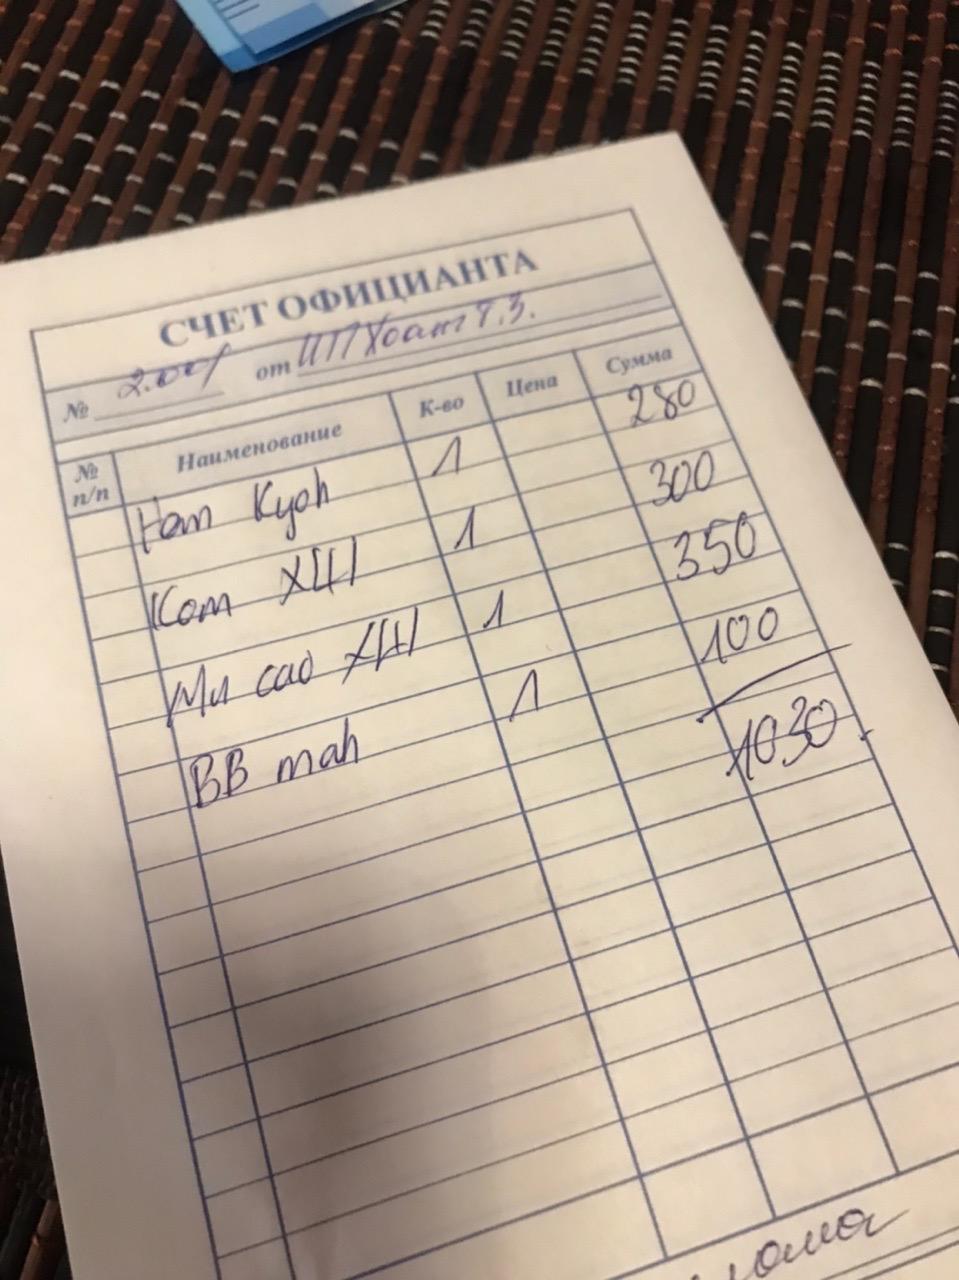 СЧЕТ ОФИЦИАНТА
№ 2.001 от ИП Хоанг Т.З.
№ п/п Наименование К-во Цена Сумма
Нем Куон 1 280
Ком ХЦ 1 300
Ми сао 1 350
ВВ тан 1 100
1030